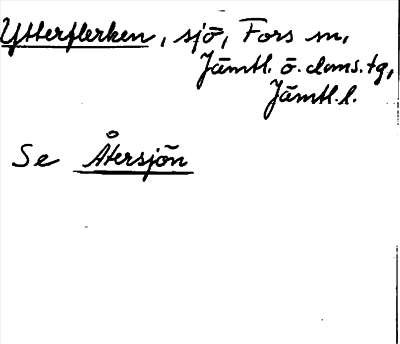 Ytterflerken, sjö, Fors sn,
Jämtl. ö. doms.tg,
Jämtl.l.
Se Återsjön